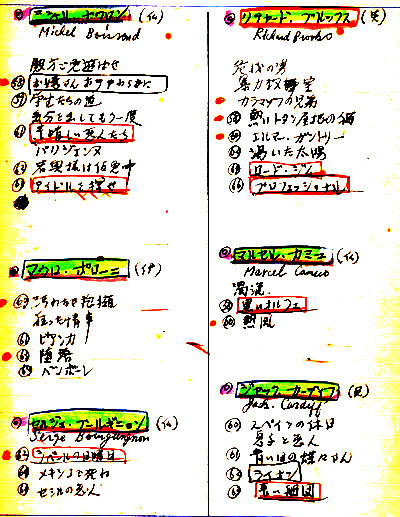 ミシェル・ボワロン (仏)
Michel Boisrond
殿方ご免遊ばせ
56 お嬢さんお手やわらかに
59 学生たちの道
気分を出してもう一度
61 素晴しい恋人たち
パリジェンヌ
62
63 アイドルを探せ
マウロ・ボローニ (伊)
63 狂った情事
64 ビアンカ
68 堕落
69
セルジュ・ブールギニョン (仏)
Serge Bourguignon
62 シベールの日曜日
64 メキシコで死ね
68 セシルの恋人
リチャード・ブルックス (米)
Richard Brooks
危機の男
暴力教室
カラマゾフの兄弟
58 熱いトタン屋根の猫
60 エルマー・ガントリー
渇いた太陽
65 ロード・ジム
66 プロフェッショナル
マルセル・カミュ (仏)
Marcel Camus
濁流
59 黒いオルフェ
60 熱風
ジャック・カーディフ (英)
Jack Cardiff
60 スペインの休日
息子と恋人
61 青い目の蝶々さん
64 ライオン
65